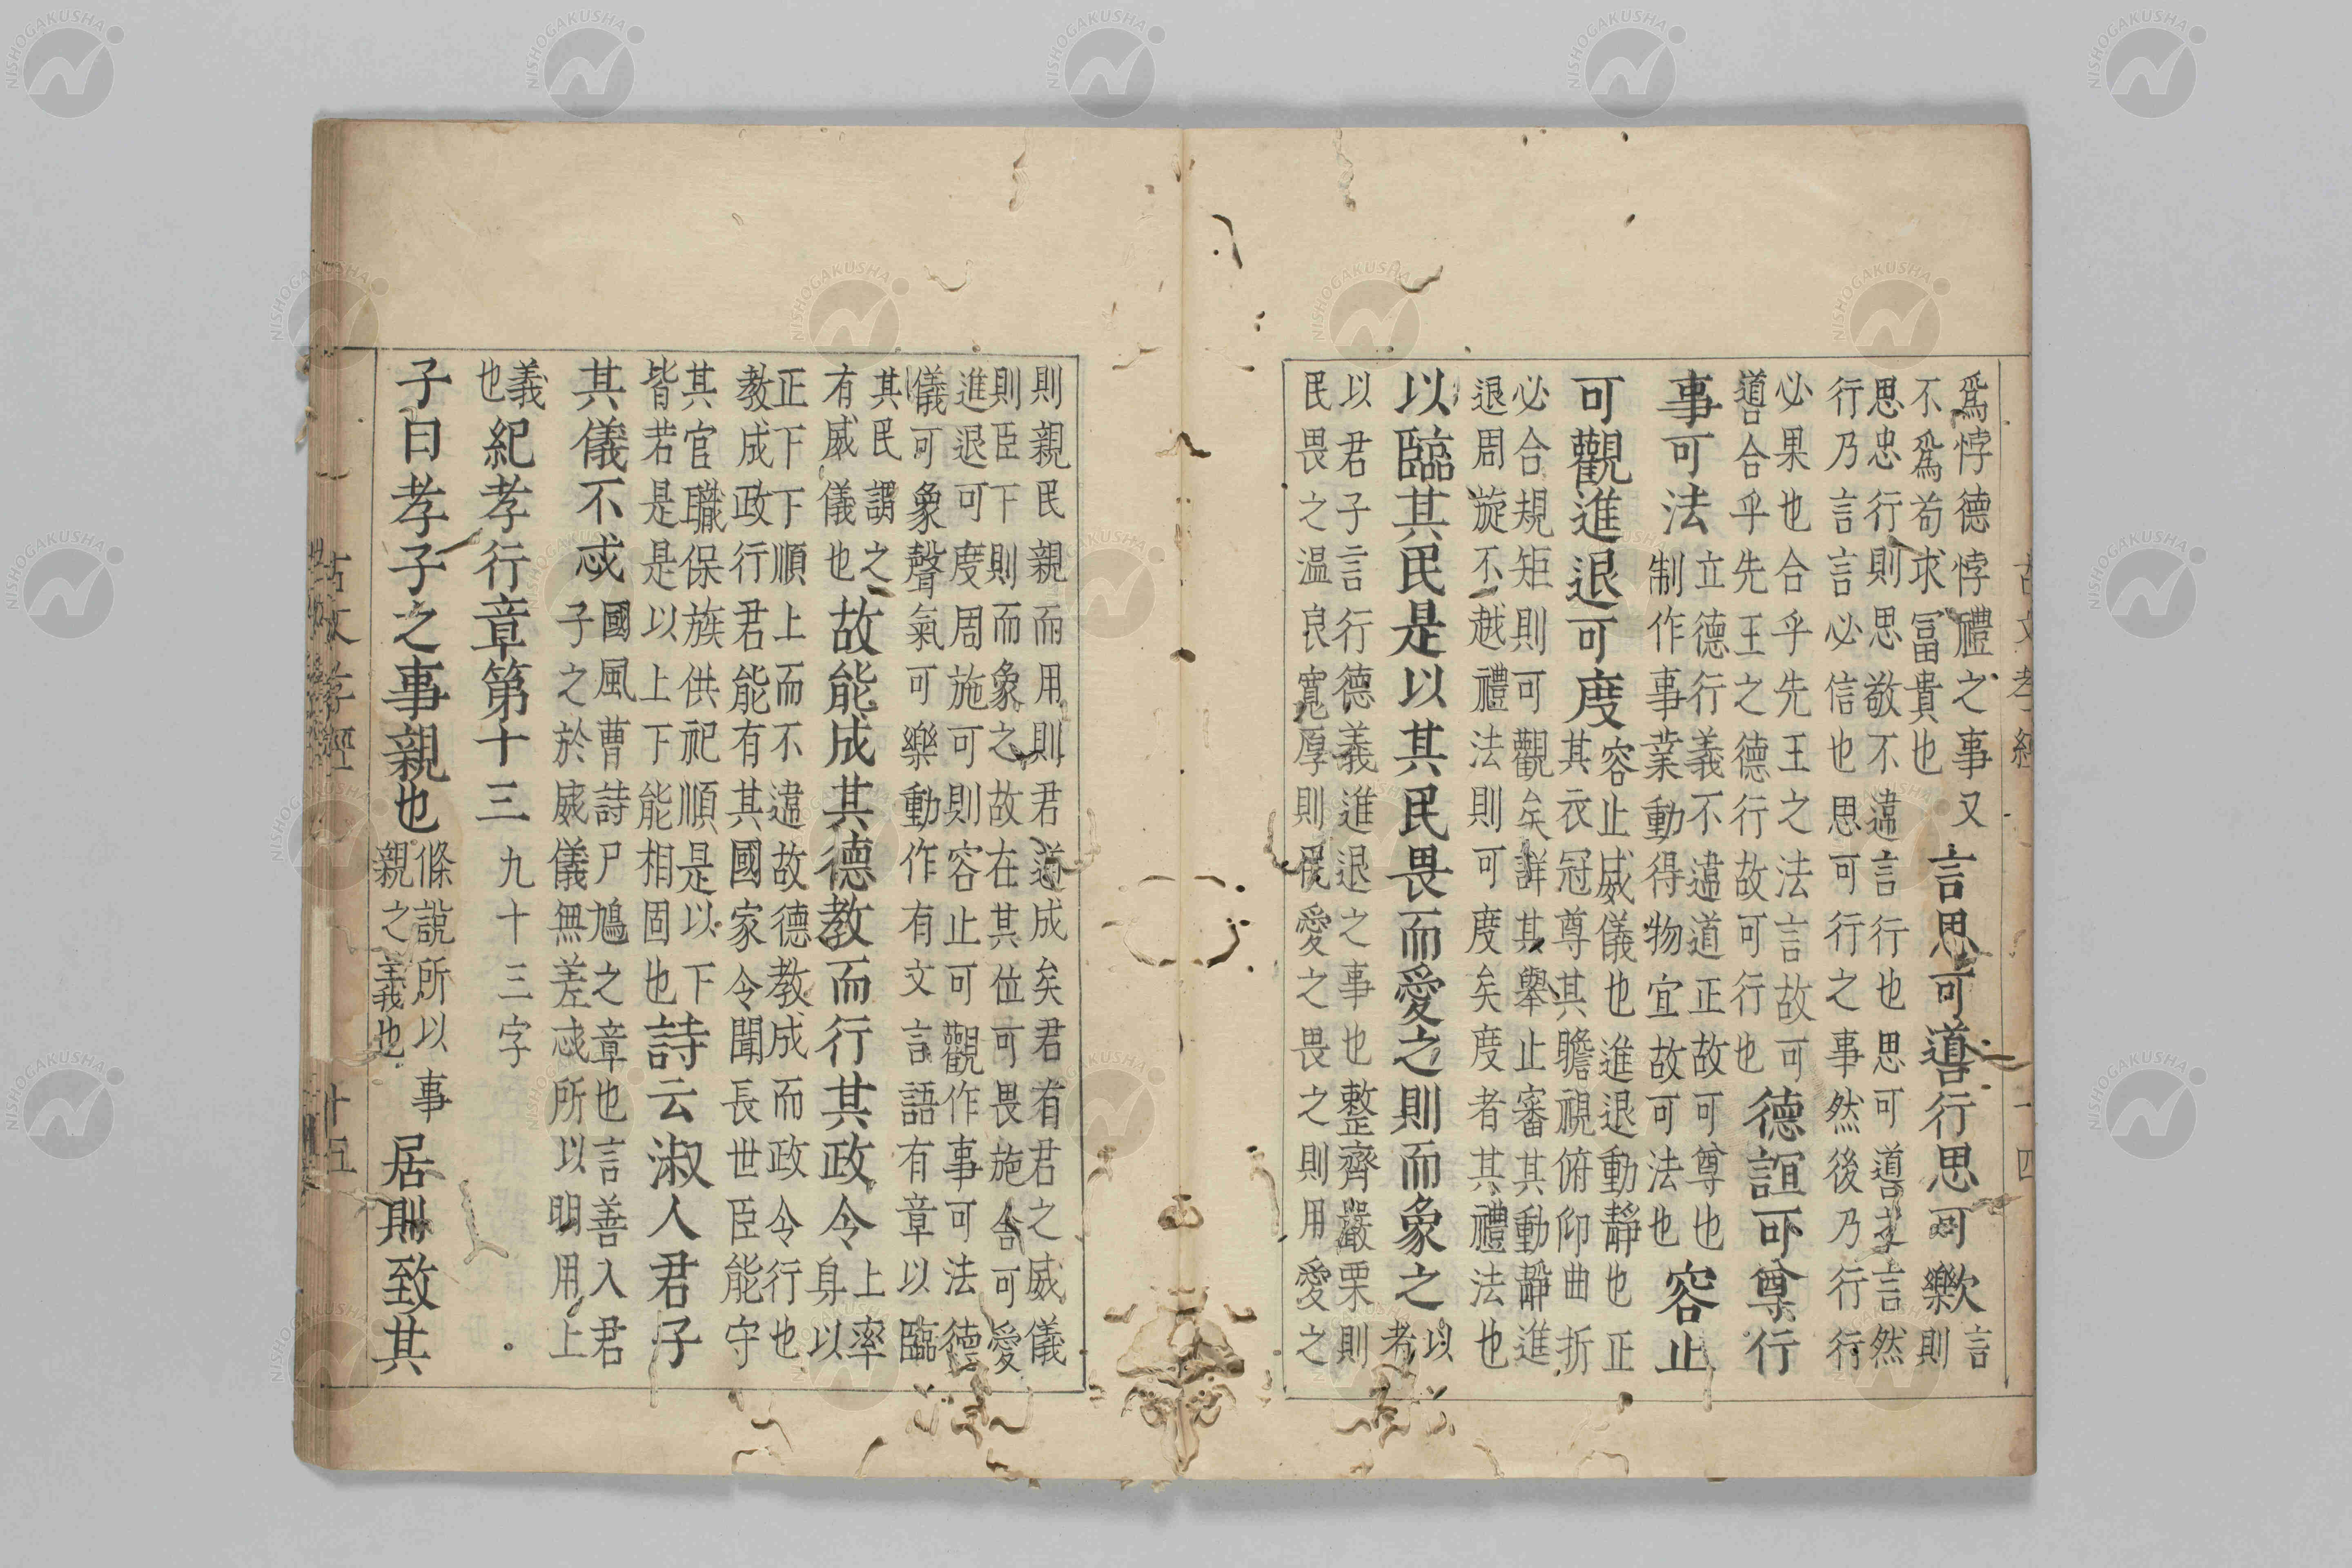 古文孝經 十四
爲悖德悖禮之事又不爲苟求冨貴也言思可道行思可樂言則
思忠行則思敬不違言行也思可道之言然
行乃言言必信也思可行之事然後乃行行
必果也合乎先王之法言故可道合乎先王之德行故可行也德誼可尊行
事可法立德行義不違道正故可尊也制作事業動得物宜故可法也容止
可觀進退可度容止威儀也進退動靜也正其衣冠尊其瞻視俯仰曲折
必合規矩則可觀矣詳其舉止審其動靜進
退周旋不越禮法則可度矣度者其禮法也
以臨其民是以其民畏而愛之則而象之以者
以君子言行德義進退之事也整齊嚴栗則
民畏之溫良寬厚則民愛之畏之則用愛之
則親民親而用則君道成矣君有君之威儀
則臣下則而象之故在其位可畏施舍可愛
進退可度周施可則容止可觀作事可法德
儀可象聲氣可樂動作有文言語有章以臨
其民謂之有威儀也故能成其德教而行其政令上率身以
正下下順上而不違故德教成而政令行也
教成政行君能有其國家令聞長世臣能守
其官職保族供祀順是以下皆若是是以上下能相固也詩云淑人君子
其儀不忒國風曹詩尸鳩之章也言善人君子之於威儀無差忒所以明用上
義也紀孝行章第十三 九十三字
子曰孝子之事親也條說所以事親之義也居則致其
古文孝經 十五
NISHOGAKUSHA